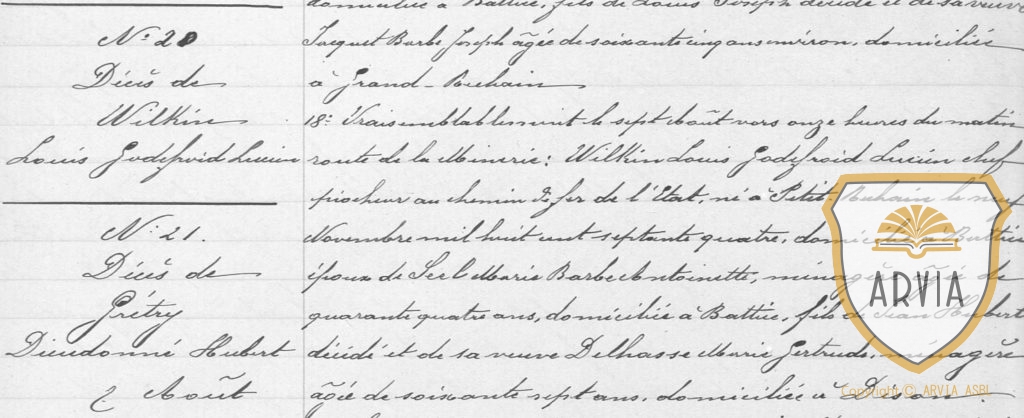 domiciliée à Battice, fils de Louis Joseph décédé et de sa veuve
N° 20
Décès de
Wilkin
Louis Godefroid Lucien
Jacquet Barbe Joseph âgée de soixante cinq ans environ, domiciliée
à Grand-Rechain
18° Vraisemblablement le sept Août vers onze heures du matin
route de la Minerie: Wilkin Louis Godefroid Lucien chef
piocheur au chemin de fer de l'Etat, né à Petit-Rechain le neuf
Novembre mil huit cent septante quatre, domicilié à Battice
époux de Marie Barbe Antoinette, ménagère âgée de
quarante quatre ans, domiciliée à Battice, fils de Jean Hubert
décédé et de sa veuve Delhasse Marie Gertrude, ménagère
âgée de soixante sept ans, domiciliée à Dison.
N° 21.
Décès de
Grétry
Dieudonné Hubert
2 Août
ARVIA
Copyright © ARVIA ASBL